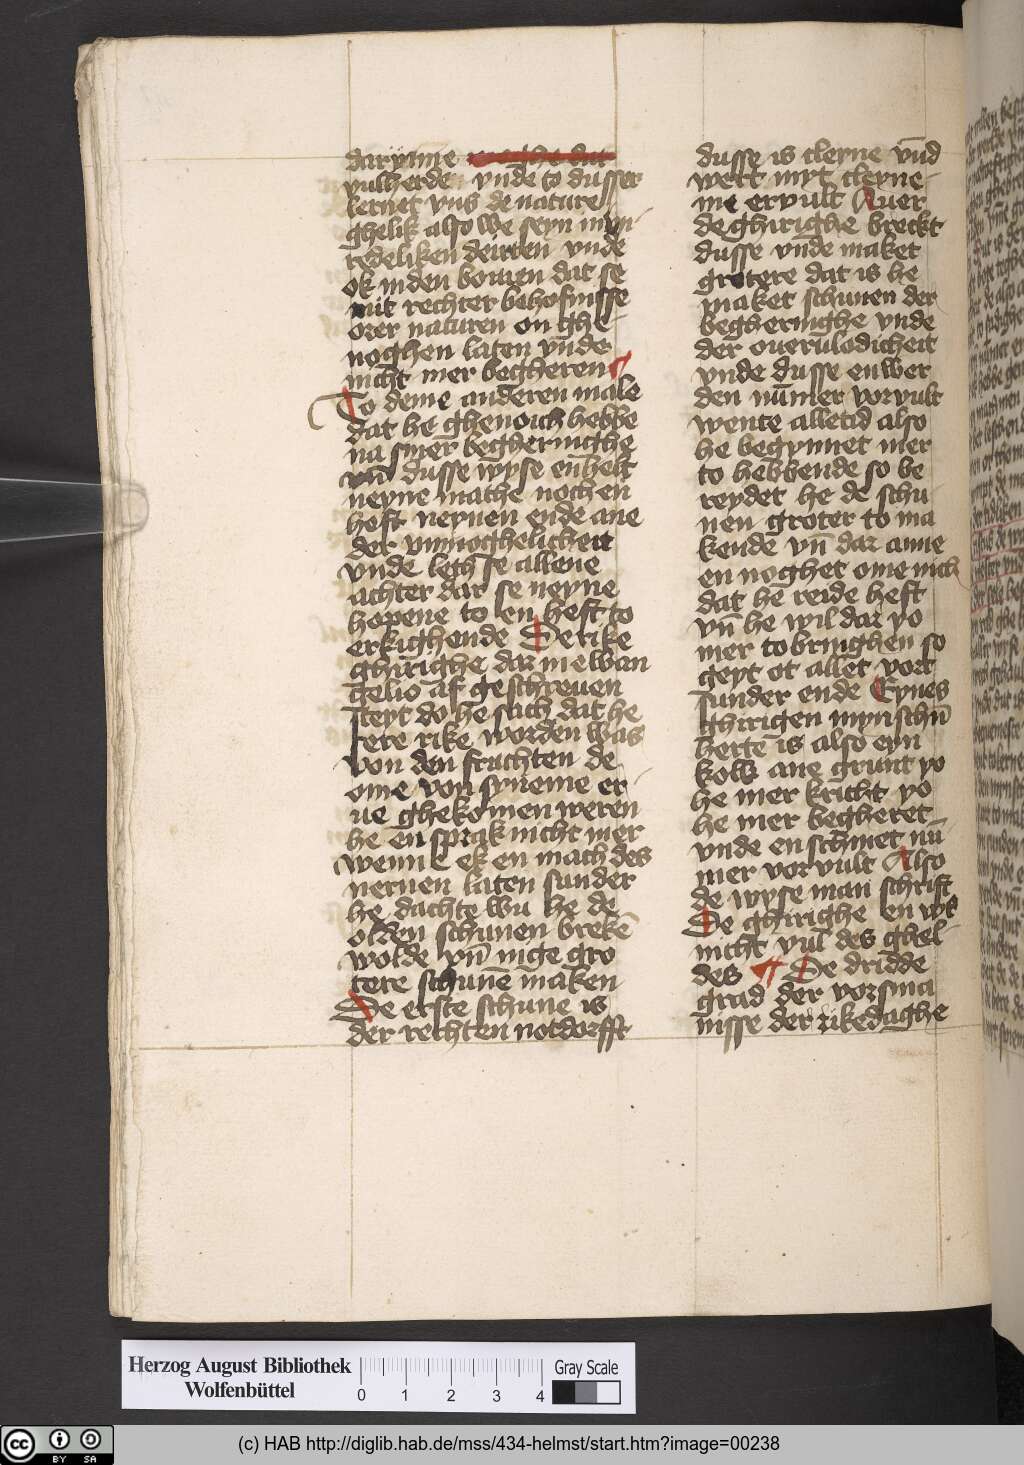 darynne
vulherde vnde to dusser
lernet vns de nature
ghelik also we seyn in yn
redeliken deirten vnde
ok in den bomen dat se
mit rechter behofnisse
orer naturen on ghe
noghen laten vnde
nicht mer begheren
To deme anderen male
dat he ghenoich hebbe
na siner begheringhe
vn̄ dusse wyse en helt
neyne mathe noch en
heft neynen ende ane
der vnmoghelicheit
vnde leth se allene
achter dar se neyne
hopene to en heft to
erkrighende De rike
ghirighe dar me wan
gelio af geschreuen
steyt do he sach dat he
sere rike worden was
von den fruchten de
ome von syneme er
ue ghekomen weren
he en sprak nicht mer
wenne ek en mach des
nernen laten sunder
he dachte wu he de
olden schunen brekē
wolde vn̄ nige gro
tere schunē maken
De erste schune is
der rechten notdorfft
dusse is cleyne vnd
wert myt cleyne
me ervult Auer
de ghirighe breckt
dusse vnde maket
grotere dat is he
maket schunen der
begheringhe vnde
der ouerulodicheit
vnde dusse en wer
den nūmer vorvult
wente alletid also
he begynnet mer
to hebbende so be
reydet he de schu
nen groter to ma
kende vn̄ dar anne
en noghet ome nich
dat he reide heft
vn̄ he wil dar yo
mer to bringhen so
geyt ot allet vort
sunder ende Eynes
ghirigen mynschn̄
herte is also eyn
kolk ane grunt yo
he mer kricht yo
he mer begheret
vnde en schinet nū
mer vorvult Also
de wyse man schrift
De ghirighe en wert
nicht vul des ghel
des De dridde
grad der vorsma
nisse der rikedaghe
Herzog August Bibliothek
Wolfenbüttel
0 1 2 3 4
Gray Scale
CC BY SA
(c) HAB http://diglib.hab.de/mss/434-helmst/start.htm?image=00238